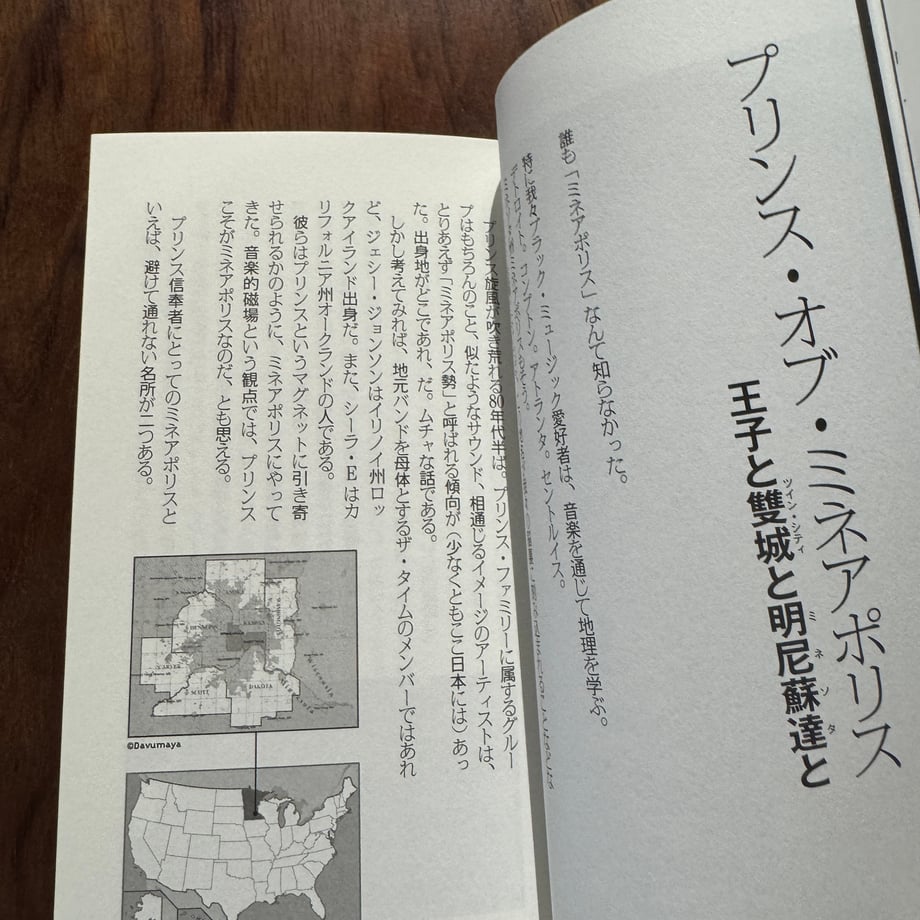 プリンス・オブ・ミネアポリス
王子と雙城と明尼蘇達と
ツイン・シティ
ミネソタ
誰も「ミネアポリス」なんて知らなかった。
特に我々ブラック・ミュージック愛好者は、音楽を通じて地理を学ぶ。
デトロイト。コンプトン。アトランタ。セントルイス。
プリンス旋風が吹き荒れる80年代半ば。プリンス・ファミリーに属するグルー
プはもちろんのこと、似たようなサウンド、相通じるイメージのアーティストは、
とりあえず「ミネアポリス勢」と呼ばれる傾向が（少なくともここ日本には）あっ
た。出身地がどこであれ、だ。ムチャな話である。
しかし考えてみれば、地元バンドを母体とするザ・タイムのメンバーではあれ
ど、ジェシー・ジョンソンはイリノイ州ロッ
クアイランド出身だ。また、シーラ・Eはカ
リフォルニア州オークランドの人である。
彼らはプリンスというマグネットに引き寄
せられるかのように、ミネアポリスにやって
きた。音楽的磁場という観点では、プリンス
こそがミネアポリスなのだ、とも思える。
プリンス信奉者にとってのミネアポリスと
いえば、避けて通れない名所が二つある。
RAMSEY
SCOTT
DAKOTA
Wisconsin
©Davumaya